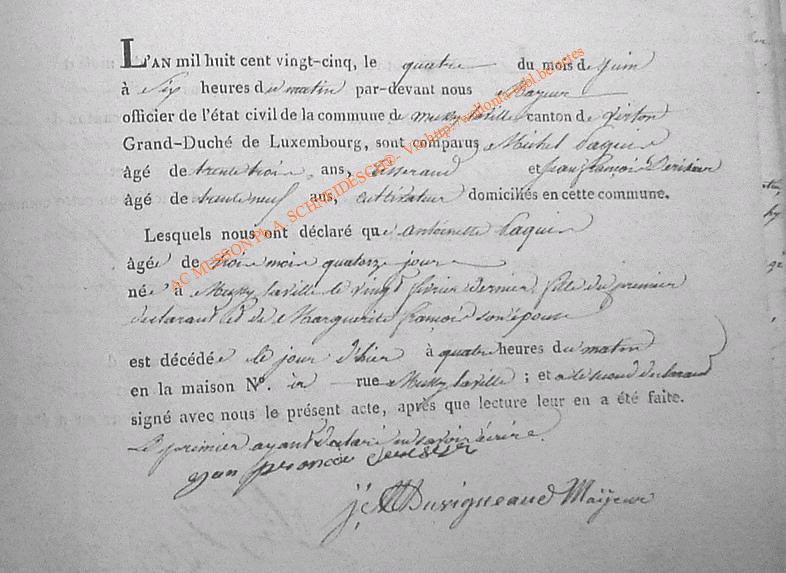 L'AN mil huit cent vingt-cinq, le quatre du mois de juin
à Six heures du matin par-devant nous Mayeur
officier de l'état civil de la commune de Mussy laville canton de Virton
Grand-Duché de Luxembourg, sont comparus Michel Paquin
âgé de trente trois ans, tisserand et jean françois
âgé de trente neuf ans, cultivateur domiciliés en cette commune.
Lesquels nous ont déclaré que antoinette Paquin
âgée de trois mois quatorze jours
née à Mussy laville le vingt février dernier fille du premier
declarant et de Marguerite françois son épouse
est décédée le jour d'hier à quatre heures du matin
en la maison N°. rue Mussy laville ; et a le second declarant
signé avec nous le présent acte, après que lecture leur en a été faite.
Le premier ayant déclaré ne savoir écrire.
jean francois
j: Duvigneaud Maÿeur
AC MUSSON Pl. A. SCHNEIDESCH® - Via http://wallonia-mbl.be/actes